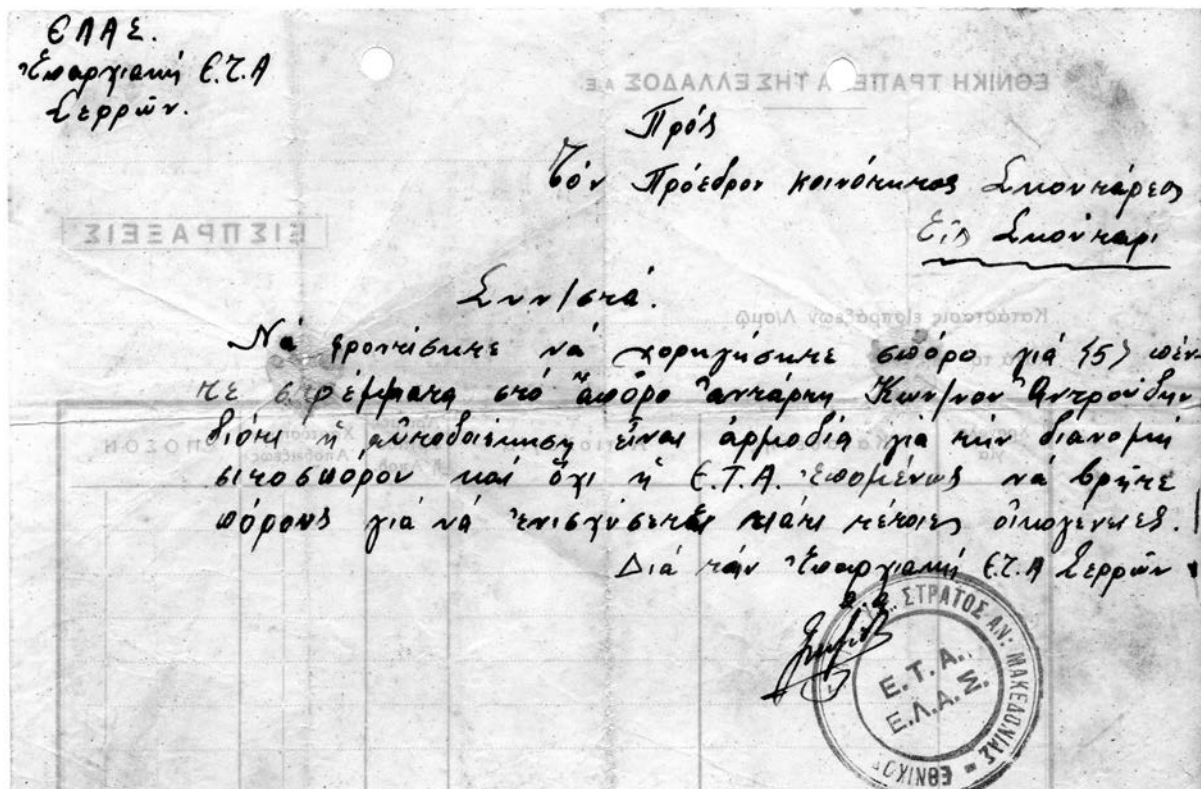 ΕΛΑΣ.
Ἐπαρχιακή Ε.Τ.Α
Σερρῶν.
ΕΘΝΙΚΗ ΤΡΑΠΕ Α ΤΗΣ ΕΛΛΑΔΟΣ Α.Ε.
Πρός
Τόν Πρόεδρον κοινότητος Σκουτάρεος
Εἰς Σκούταρι
ΕΙΣΠΡΑΞΕΙΣ
Συν/στά.
Κατάστασις εἰσπράξεων Λ/σμῶ
Νά φροντίσητε νά χορηγήσητε σπόρο γιά {5} πέν-
τε στρέμματα στό ἄπορο ἀντάρτη Κων/νον Ἀντρούδην
διότι ἡ αὐτοδιοίκηση εἶναι ἁρμοδία γιά τήν διανομή
ΠΟΣΟΝ
σιτοσπόρου καί ὄχι ἡ Ε.Τ.Α. Ἐπομένως νά βρῆτε
πόρους γιά νά ἐνισχύσετε κάτι τέτοιες οἰκογένειες.
Διά τήν Ἐπαρχιακή Ε.Τ.Α Σερρῶν
ΣΤΡΑΤΟΣ ΑΝ: ΜΑΚΕΔΟΝΙΑΣ = ΕΘΝΙΚΟΣ
Ε.Τ.Α.
Ε.Λ.Α.Σ.